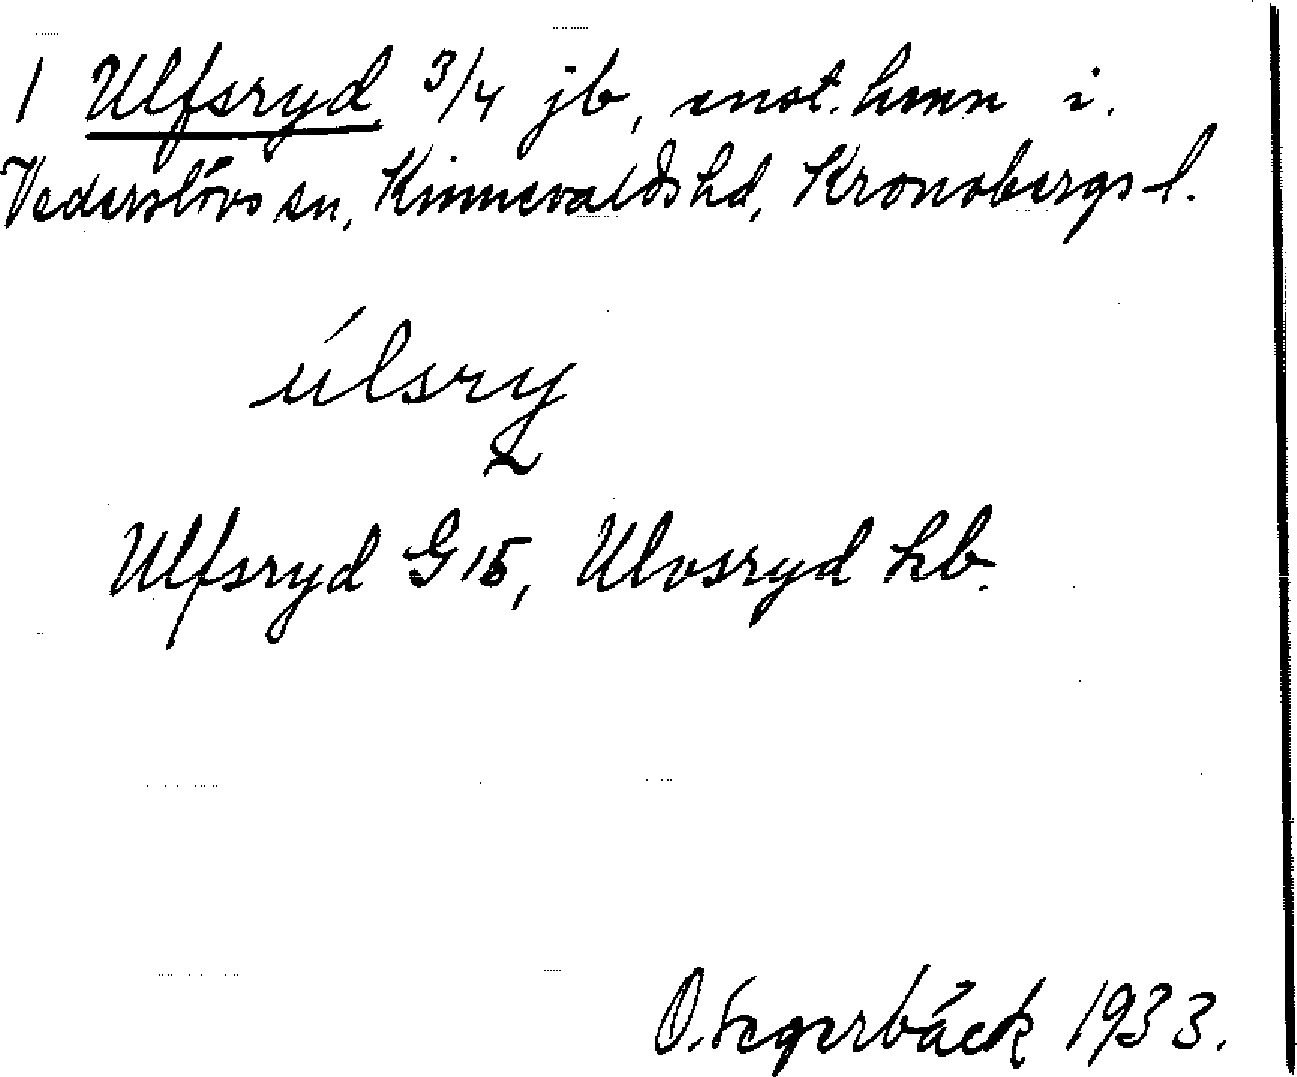 1 Ulfsryd 3/4 jb, enst. hmn i.
Vederslövs sn, Kinnevalds hd, Kronobergs l.
úlsry
Ulfsryd G 15, Ulvsryd hb.
O. Segerbäck 1933.